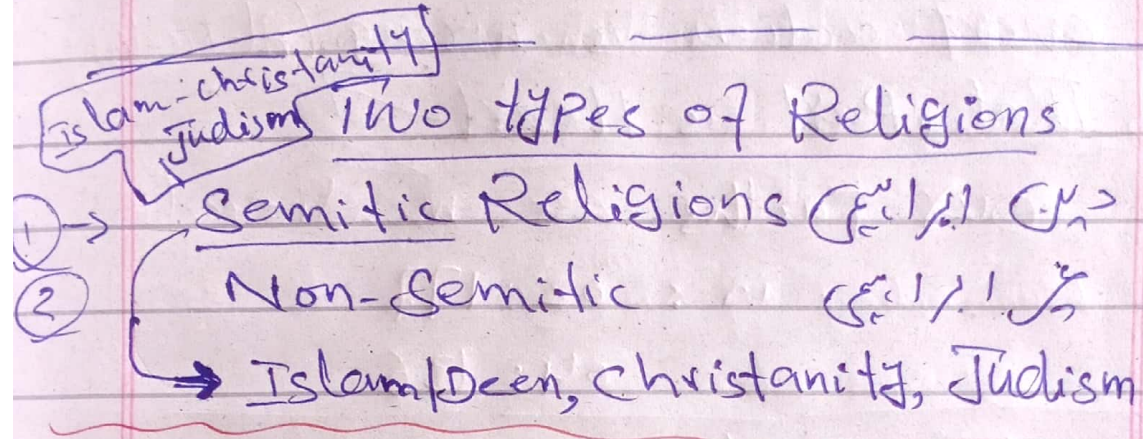 Islam-christanity
Judism
Two types of Religions
① → Semitic Religions دین ابراہیمی
② Non-Semitic غیر ابراہیمی
→ Islam/Deen, Christanity, Judism